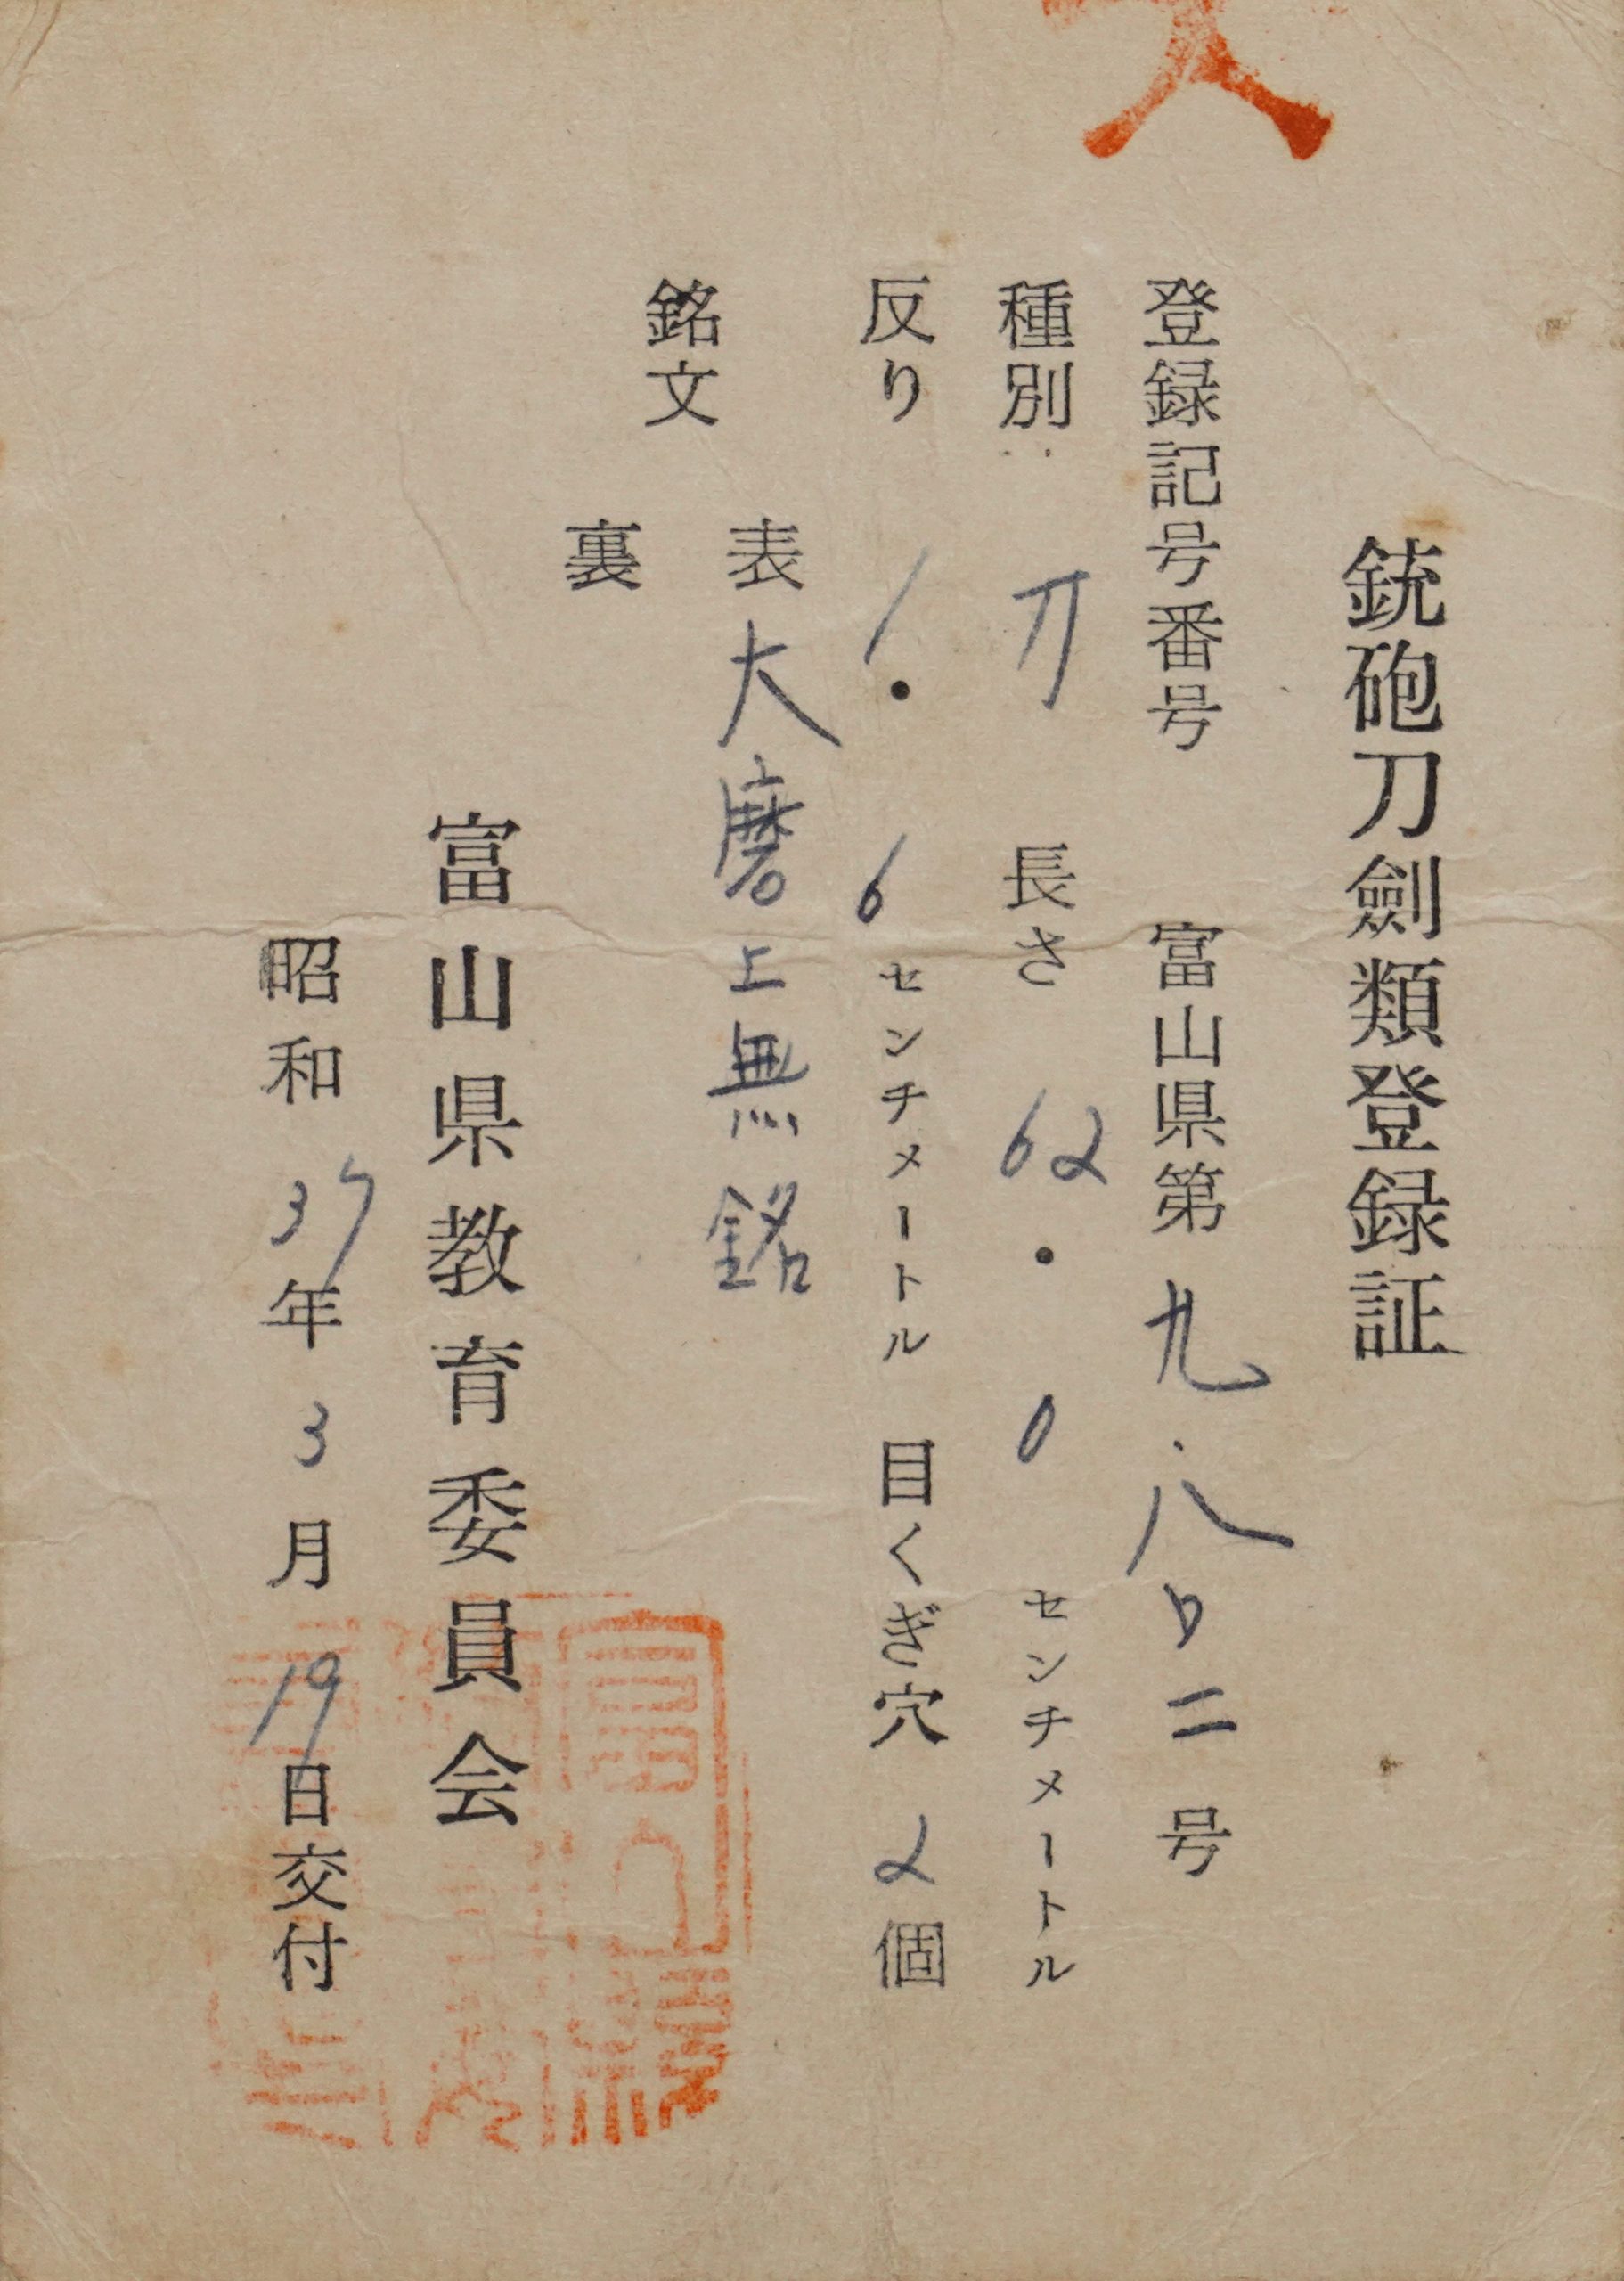 銃砲刀劍類登録証
登録記号番号 富山県第 九.八〇二 号
種別 刀 長さ 62.0 センチメートル
反り 1.6 センチメートル 目くぎ穴 2 個
銘文 表 大磨上無銘
裏
富山県教育委員会
昭和 37 年 3 月 19 日交付